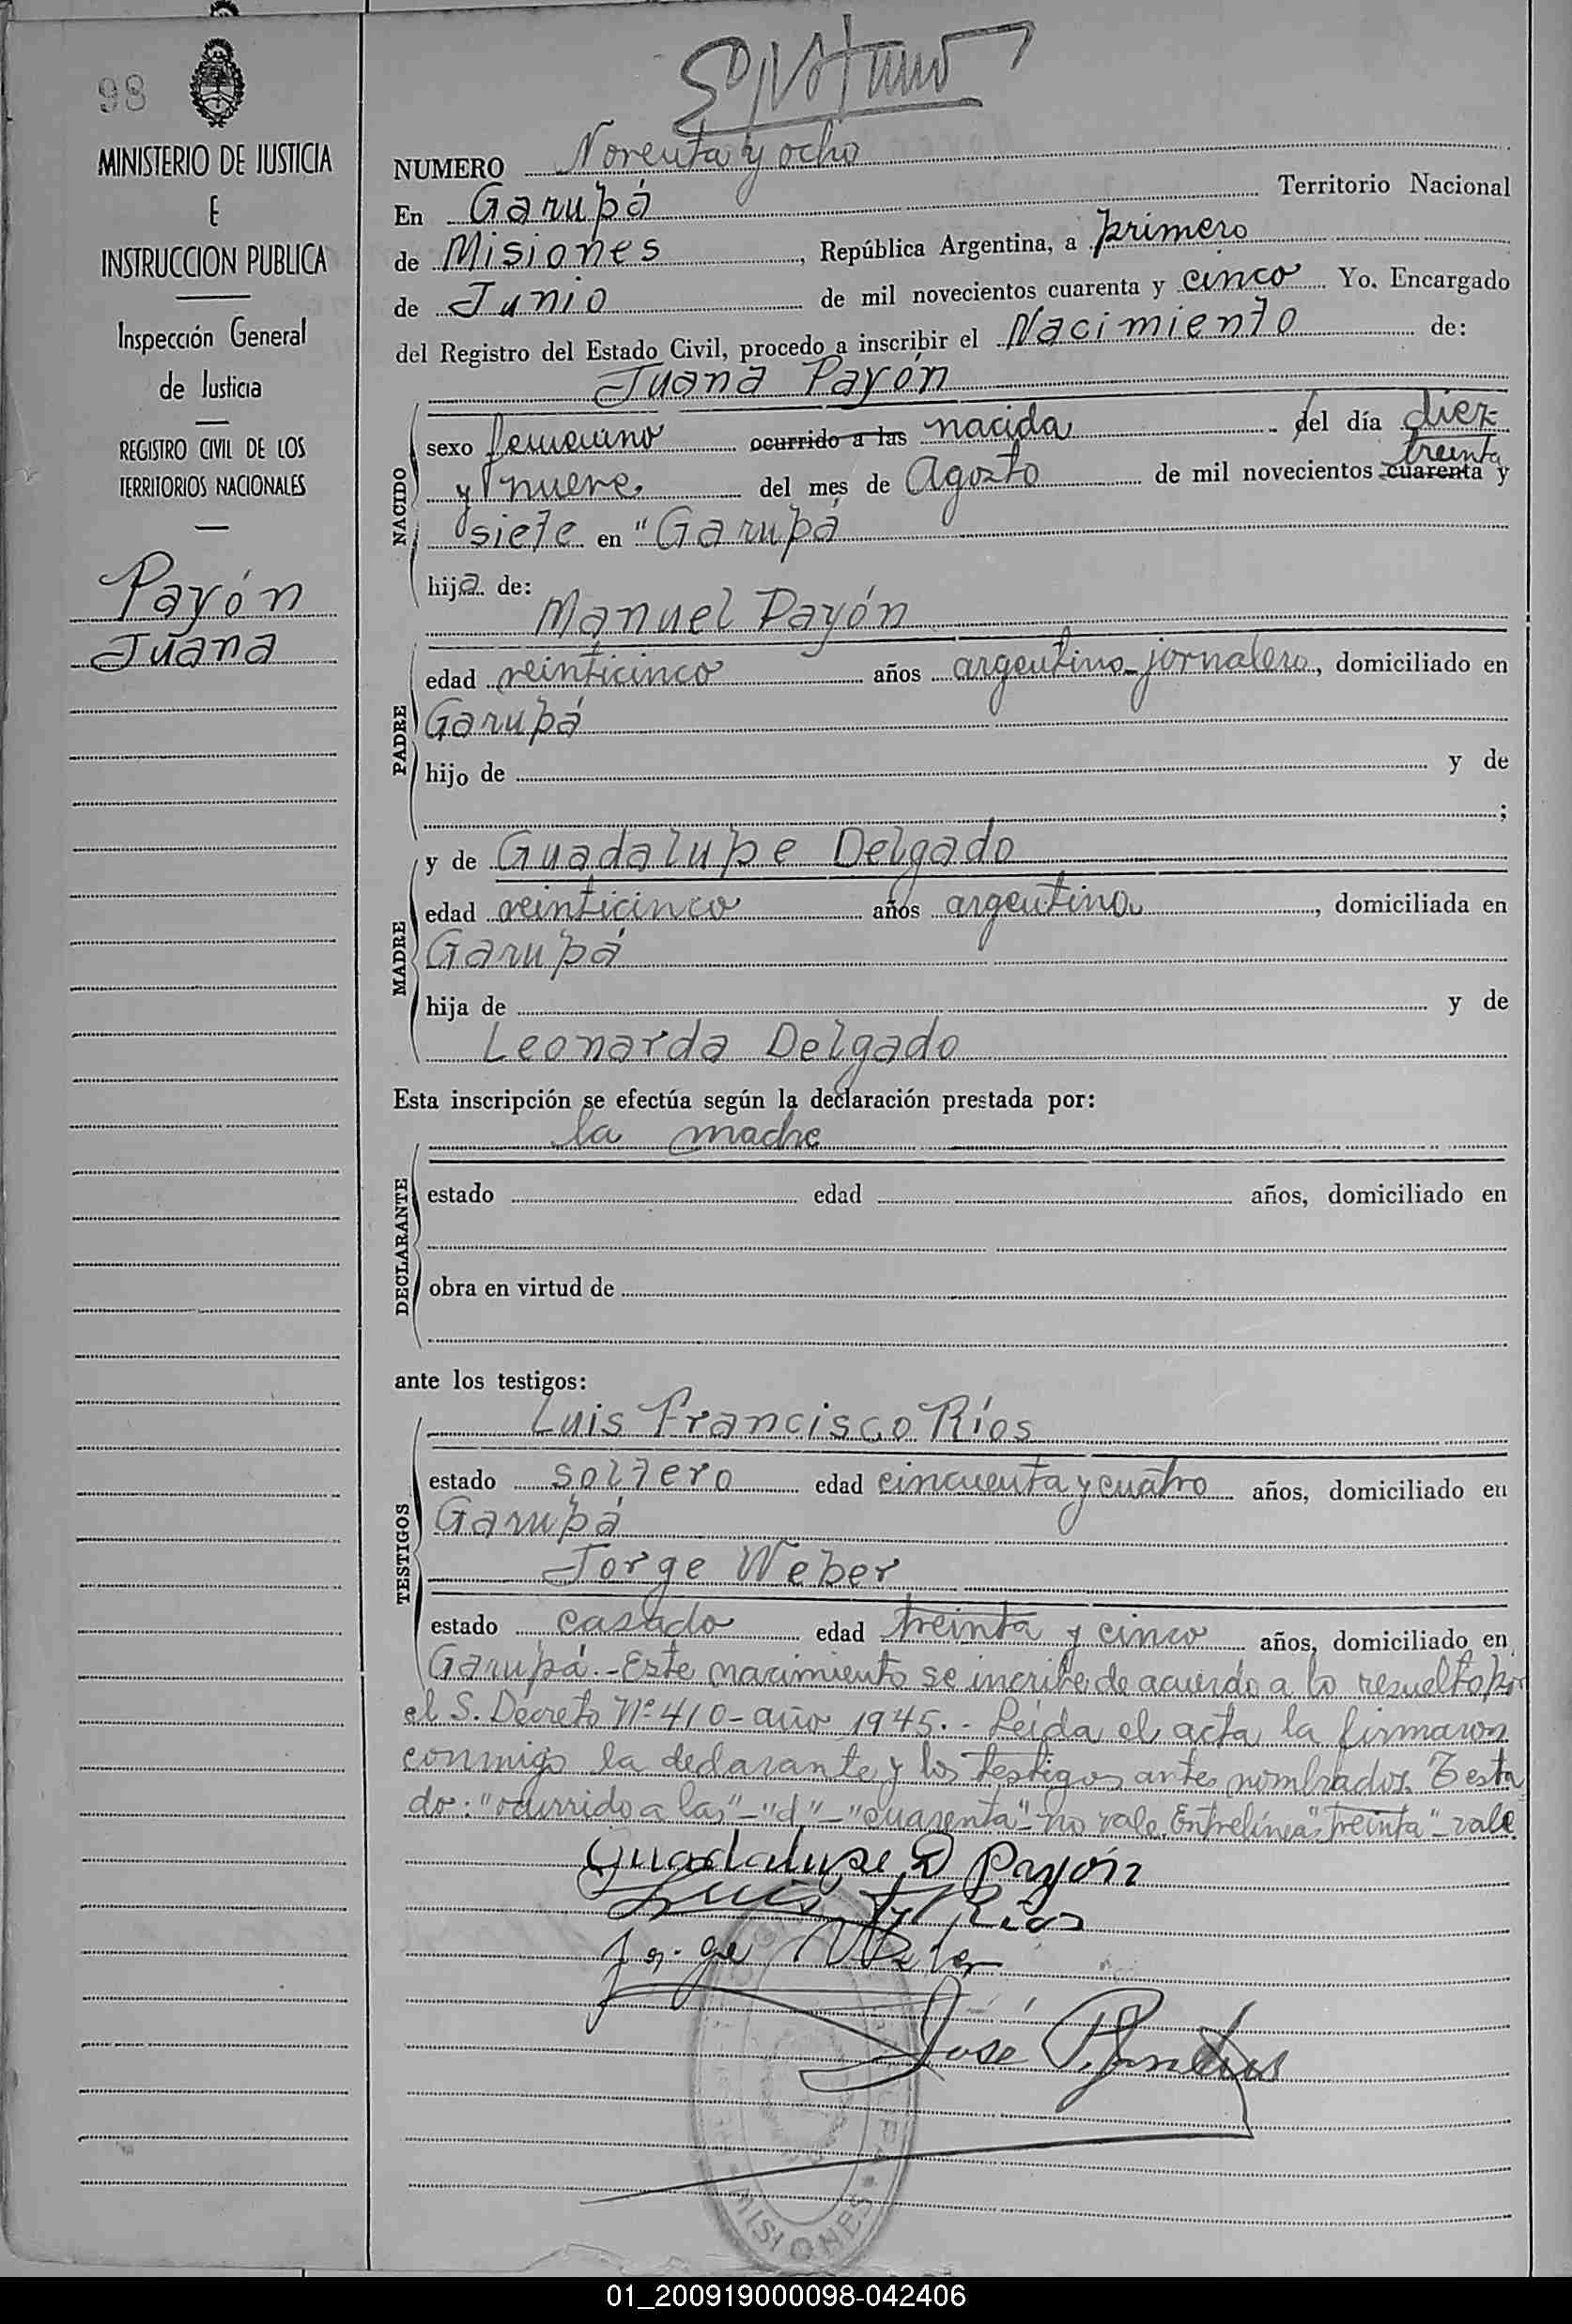 98
MINISTERIO DE JUSTICIA
E
INSTRUCCION PUBLICA
Inspección General
de Justicia
REGISTRO CIVIL DE LOS
TERRITORIOS NACIONALES
Payón
Juana
NUMERO Noventa y ocho
En Garupá Territorio Nacional
de Misiones, República Argentina, a primero
de Junio de mil novecientos cuarenta y cinco Yo, Encargado
del Registro del Estado Civil, procedo a inscribir el Nacimiento de:
Juana Payón
NACIDO
sexo femenino ocurrido a las nacida del día diez
treinta
y nueve del mes de Agosto de mil novecientos cuarenta y
siete en "Garupá
hija de:
Manuel Payón
PADRE
edad veinticinco años argentino jornalero, domiciliado en
Garupá
hijo de y de
;
MADRE
y de Guadalupe Delgado
edad veinticinco años argentina, domiciliada en
Garupá
hija de y de
Leonarda Delgado
Esta inscripción se efectúa según la declaración prestada por:
DECLARANTE
la madre
estado edad años, domiciliado en
obra en virtud de
ante los testigos:
TESTIGOS
Luis Francisco Ríos
estado soltero edad cincuenta y cuatro años, domiciliado en
Garupá
Jorge Weber
estado casado edad treinta y cinco años, domiciliado en
Garupá.- Este nacimiento se incribe de acuerdo a lo resuelto por
el S. Decreto Nº 410 - año 1945.- Leída el acta la firmaron
conmigo la declarante y los testigos antes nombrados. Testa
do: "ocurrido a las" - "d" - "cuarenta" - no vale. Entrelínea: "treinta" - vale.
Guadalupe D Payón
Luis F Rios
Jorge Weber
José P.
MISIONES
01_200919000098-042406